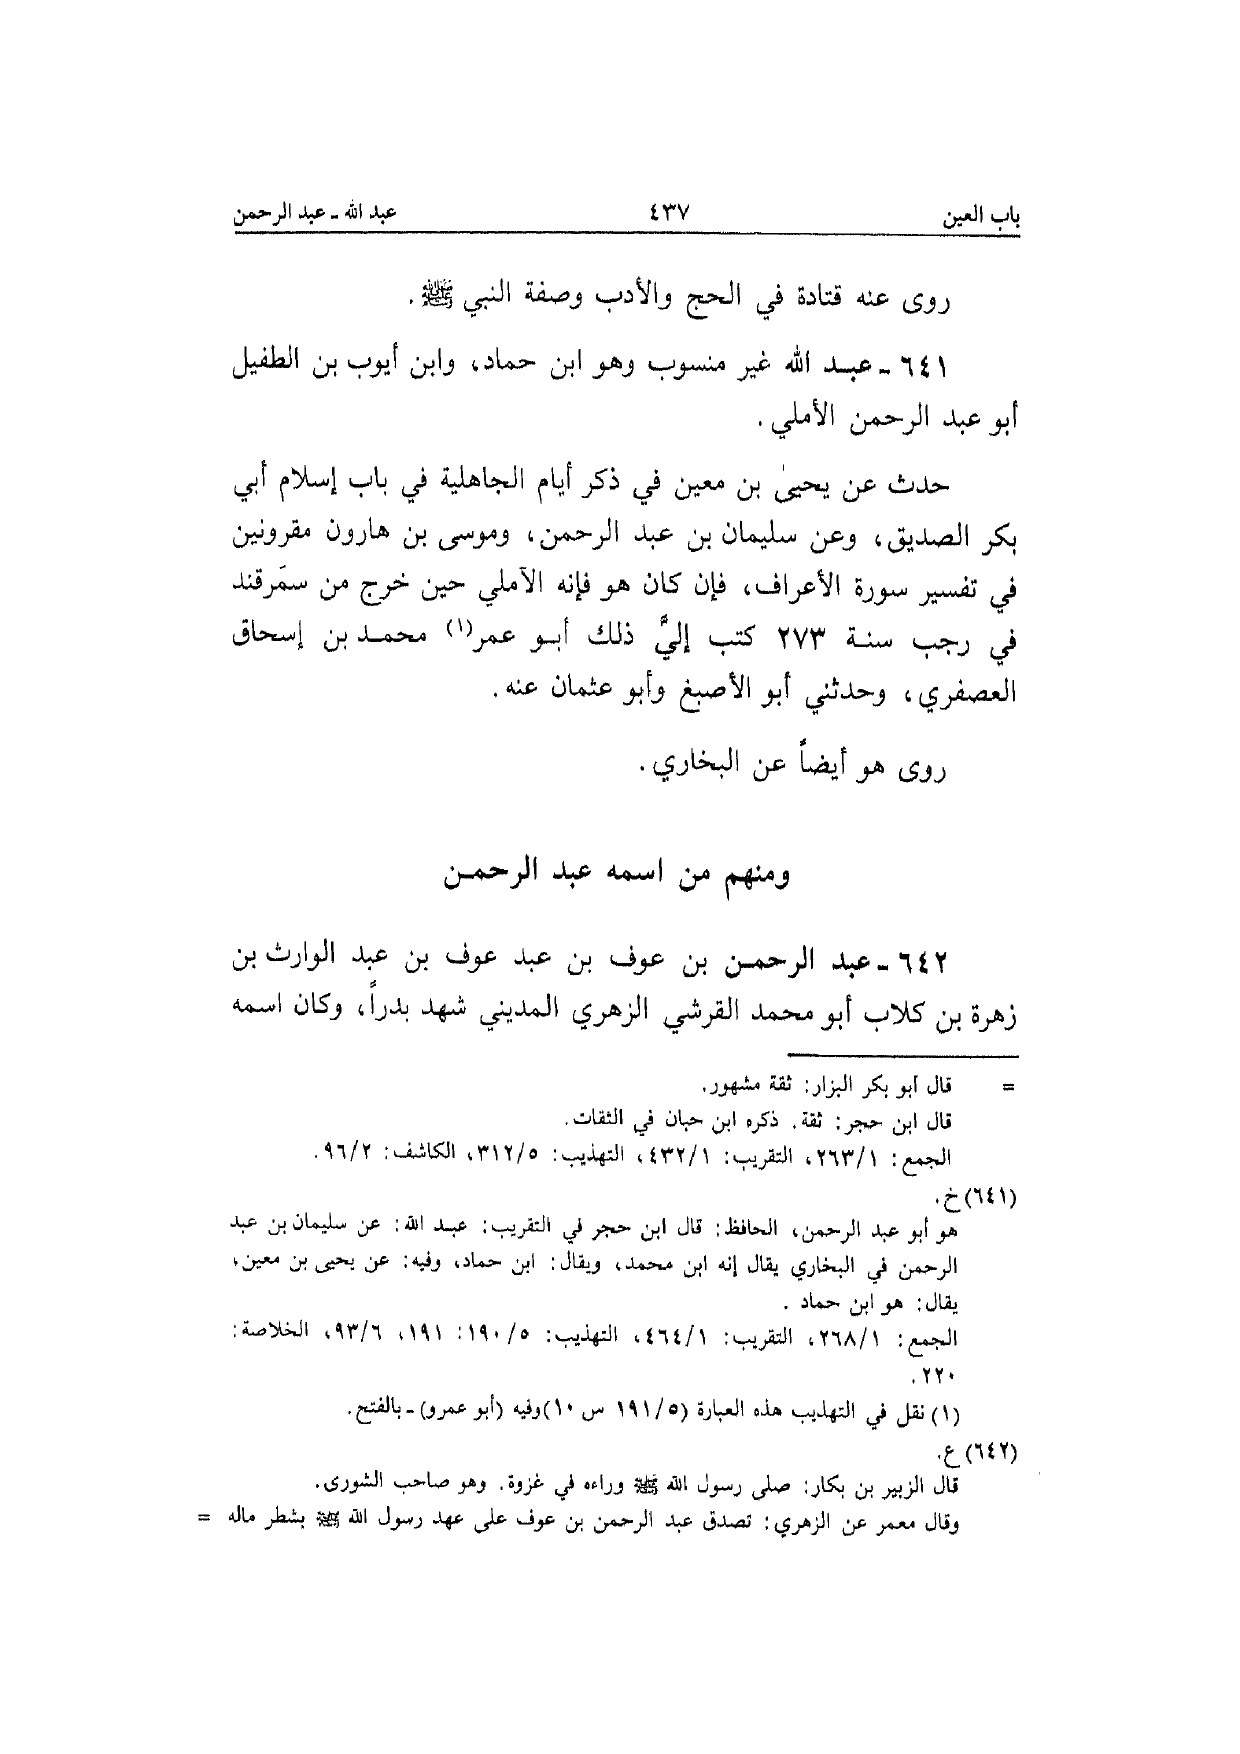 باب العين ٤٣٧ عبد الله ـ عبد الرحمن
روى عنه قتادة في الحج والأدب وصفة النبي ﷺ.
٦٤١ ـ عبـد الله غير منسوب وهو ابن حماد، وابن أيوب بن الطفيل
أبو عبد الرحمن الأملي.
حدث عن يحيىٰ بن معين في ذكر أيام الجاهلية في باب إسلام أبي
بكر الصديق، وعن سليمان بن عبد الرحمن، وموسى بن هارون مقرونين
في تفسير سورة الأعراف، فإن كان هو فإنه الآملي حين خرج من سمَرقند
في رجب سنـة ٢٧٣ كتب إليَّ ذلك أبـو عمر(١) محمـد بن إسحاق
العصفري، وحدثني أبو الأصبغ وأبو عثمان عنه.
روى هو أيضاً عن البخاري.
ومنهم من اسمه عبد الرحمـن
٦٤٢ ـ عبد الرحمـن بن عوف بن عبد عوف بن عبد الوارث بن
زهرة بن كلاب أبو محمد القرشي الزهري المديني شهد بدراً، وكان اسمه
= قال أبو بكر البزار: ثقة مشهور.
قال ابن حجر: ثقة. ذكره ابن حبان في الثقات.
الجمع: ٢٦٣/١، التقريب: ٤٣٢/١، التهذيب: ٣١٢/٥، الكاشف: ٩٦/٢.
(٦٤١) خ.
هو أبو عبد الرحمن، الحافظ: قال ابن حجر في التقريب: عبـد الله: عن سليمان بن عبد
الرحمن في البخاري يقال إنه ابن محمد، ويقال: ابن حماد، وفيه: عن يحيى بن معين،
يقال: هو ابن حماد .
الجمع: ٢٦٨/١، التقريب: ٤٦٤/١، التهذيب: ١٩٠/٥: ١٩١، ٩٣/٦، الخلاصة:
٢٢٠.
(١) نقل في التهذيب هذه العبارة (١٩١/٥ س ١٠) وفيه (أبو عمرو) ـ بالفتح.
(٦٤٢) ع.
قال الزبير بن بكار: صلى رسول الله ﷺ وراءه في غزوة. وهو صاحب الشورى.
وقال معمر عن الزهري: تصدق عبد الرحمن بن عوف على عهد رسول الله ﷺ بشطر ماله =